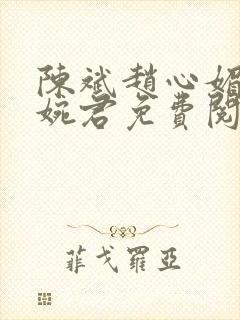 陳斌趙心媚
婉君免費閱
菲戈羅亞